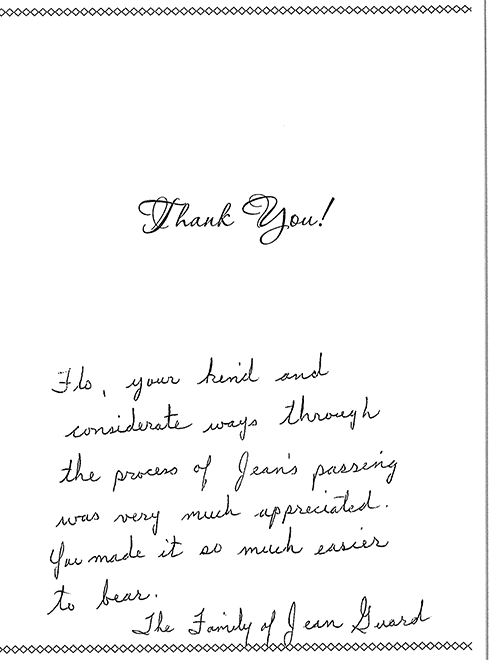 Thank You!
Flo, your kind and
considerate ways through
the process of Jean's passing
was very much appreciated.
You made it so much easier
to bear.
The Family of Jean Guard